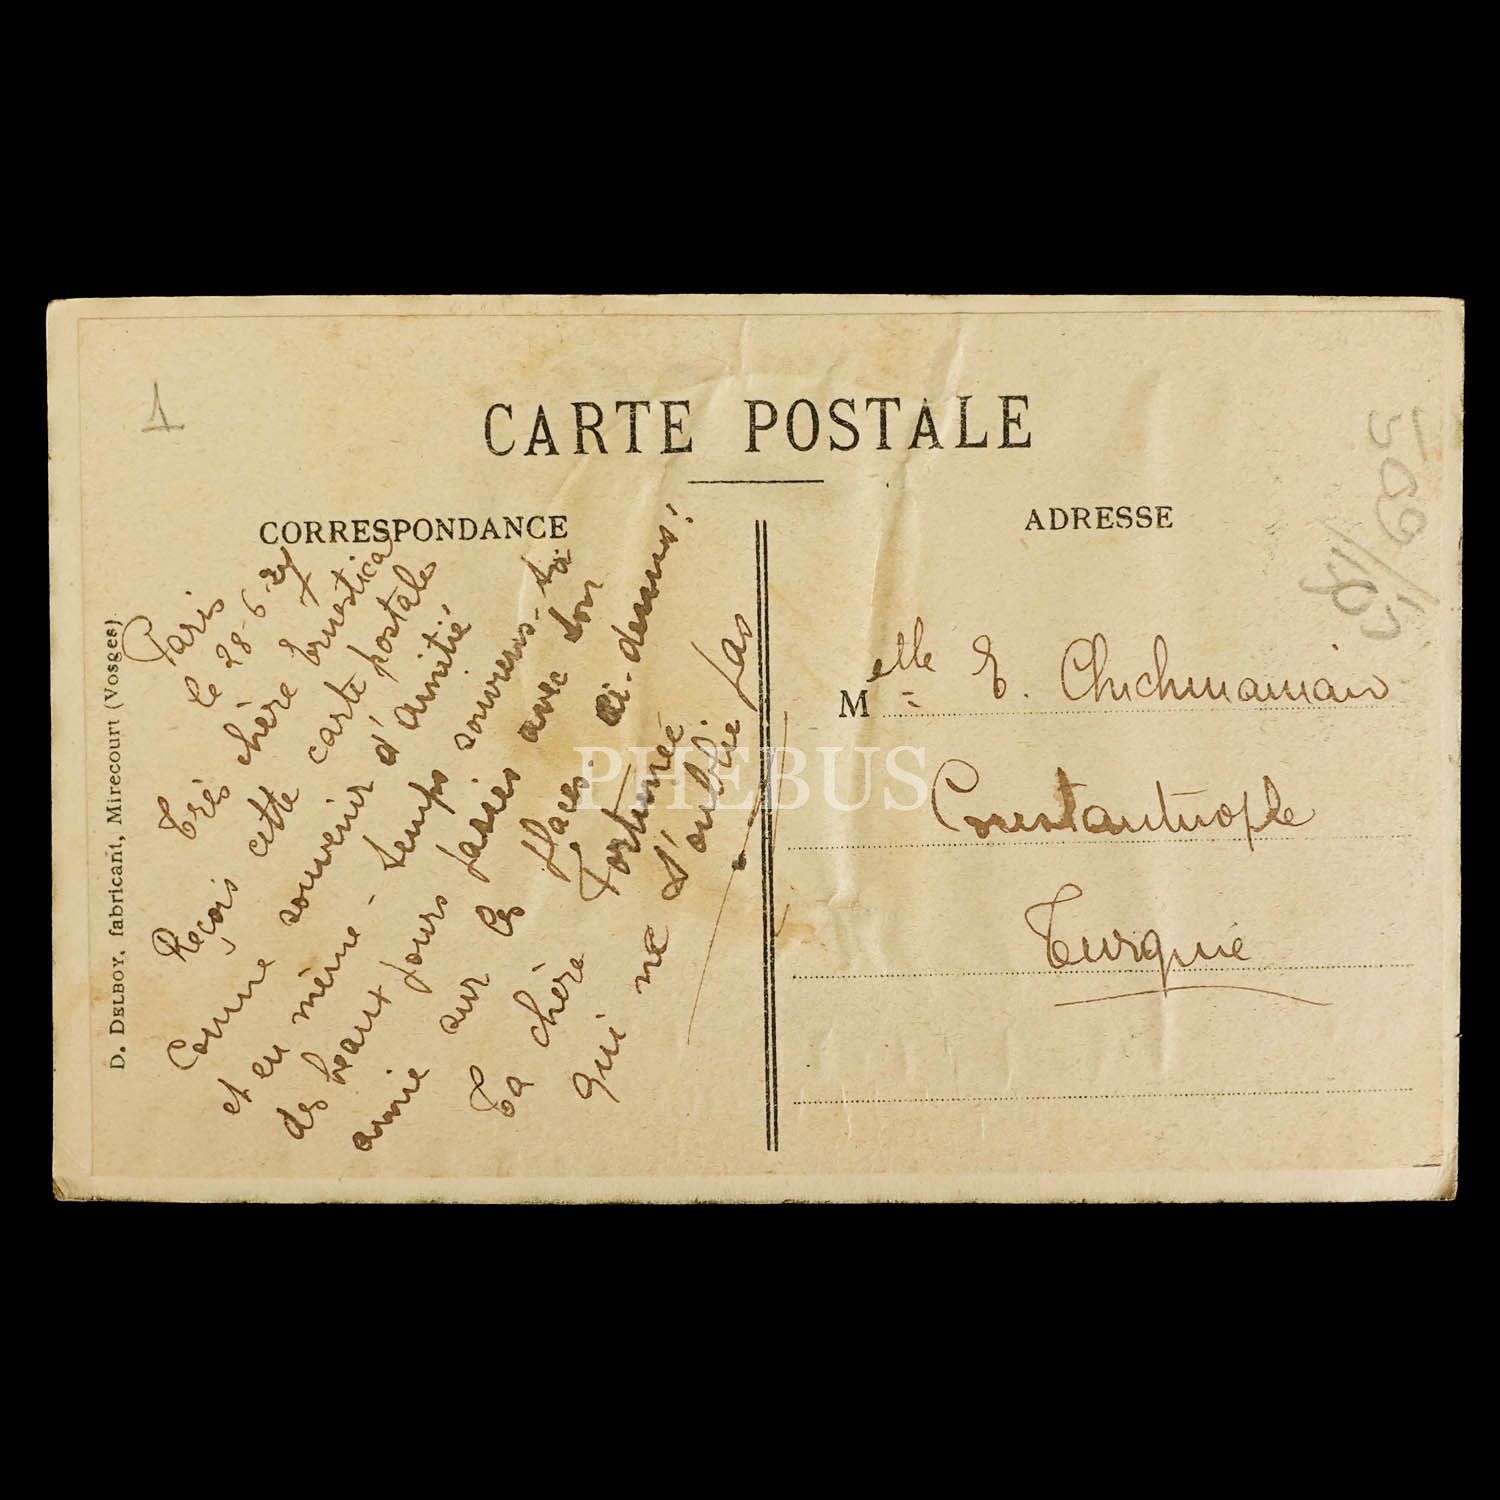 1
CARTE POSTALE
CORRESPONDANCE
ADRESSE
D. DELBOY, fabricant, Mirecourt (Vosges)
Paris
le 28-6-
Très chère Ernestica
Reçois cette carte postale
Comme souvenir d'amitié
et en même-temps souviens-toi
des beaux jours passés avec ton
amie sur les places ci-dessus!
Ta chère Fortunée
qui ne t'oublie pas
Melle E. Chichmanian
Constantinople
Turquie
PHEBUS